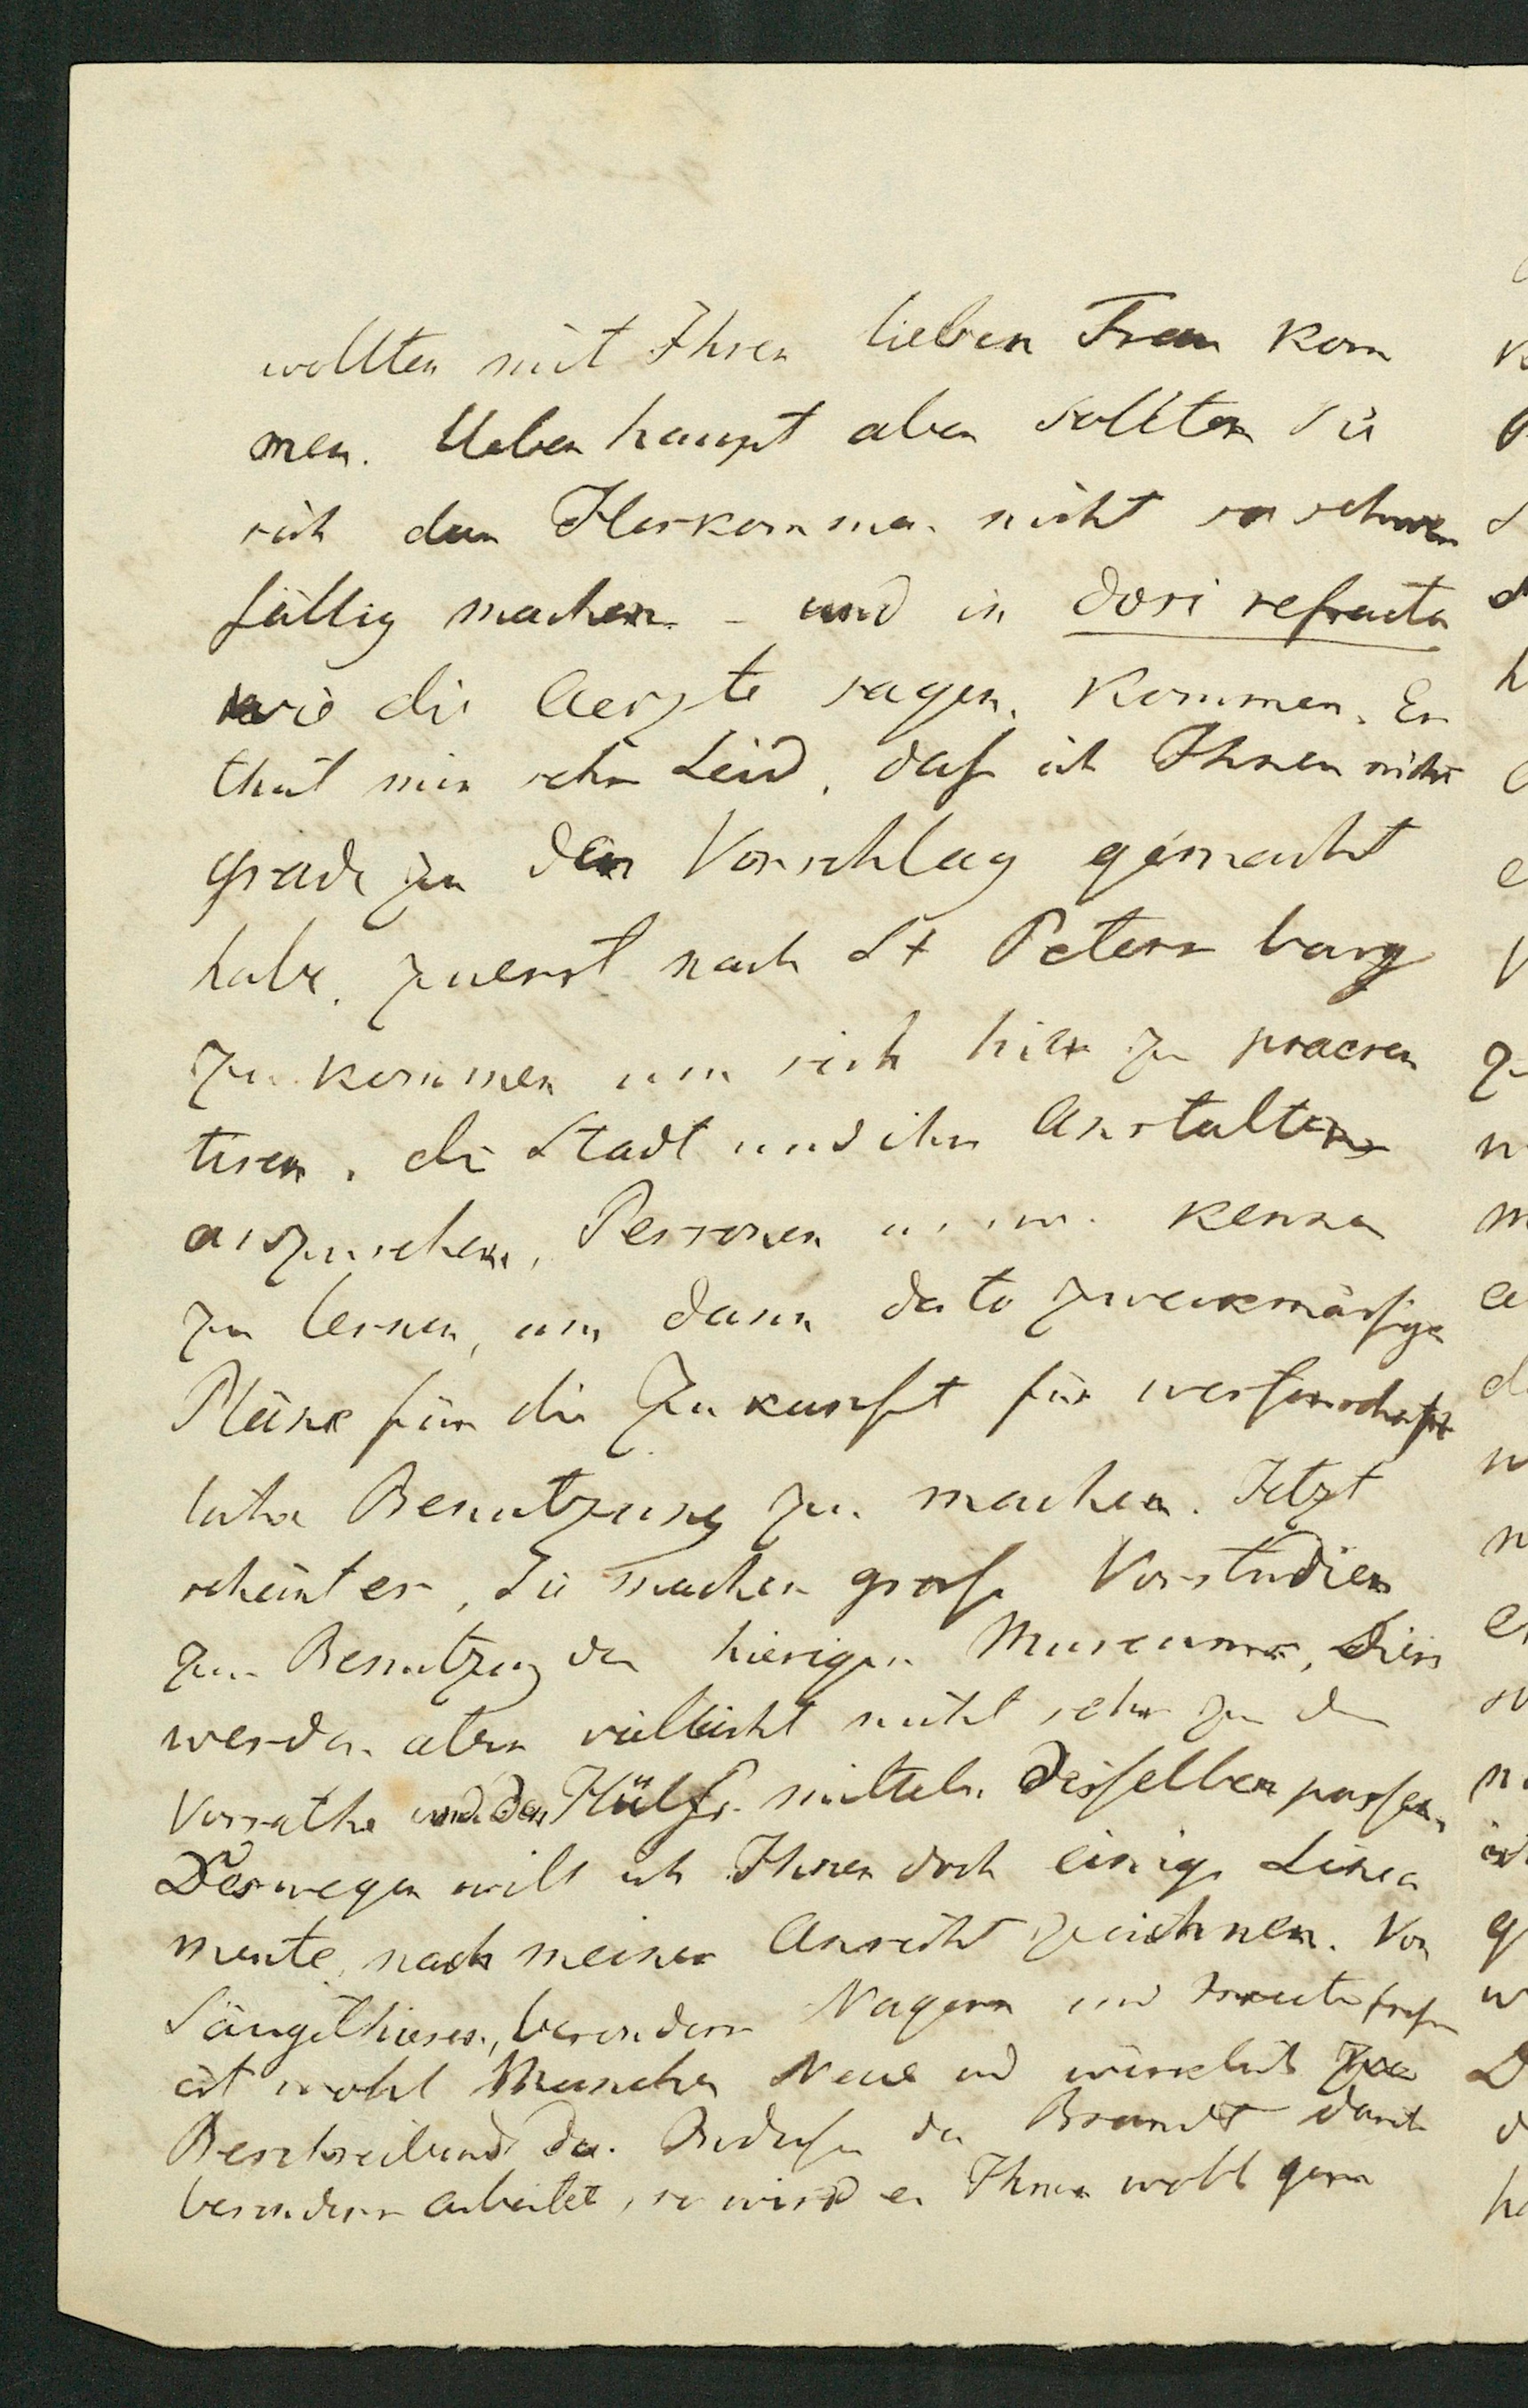 wollten mit Ihrer lieben Frau kom
men. Ueberhaupt aber sollten Sie
sich das Herkommen nicht so schwer
fällig machen. – und in dosi refracta
wie die Aerzte sagen, kommen. Es
thut mir sehr Leid, daß ich Ihnen nicht
grade zu den Vorschlag gemacht
habe, zuerst nach St Petersburg
zu kommen um sich hier zu praesen
tiren, die Stadt und ihre Anstalten
anzusehen, Personen u. s. w. kennen
zu lernen, um dann dato zweckmäßige
Pläne für die Zukunft für wissenschaft
liche Benutzung zu machen. Jetzt
scheint es, Sie machen große Vorstudien
zur Benutzung des hiesigen Museums, diese
werden aber vielleicht nicht sehr zu dem
Vorrathe und den Hülfsmitteln desselben passen,
Deswegen will ich Ihnen doch einige Linea
mente, nach meiner Ansicht zeichnen. Von
Säugethieren, besonders Nagern und Insectenfreßern
ist wohl Manches Neue und wirklich zu
Beschreibende da. Da
besonders arbeitet, so wird er Ihnen wohl gern